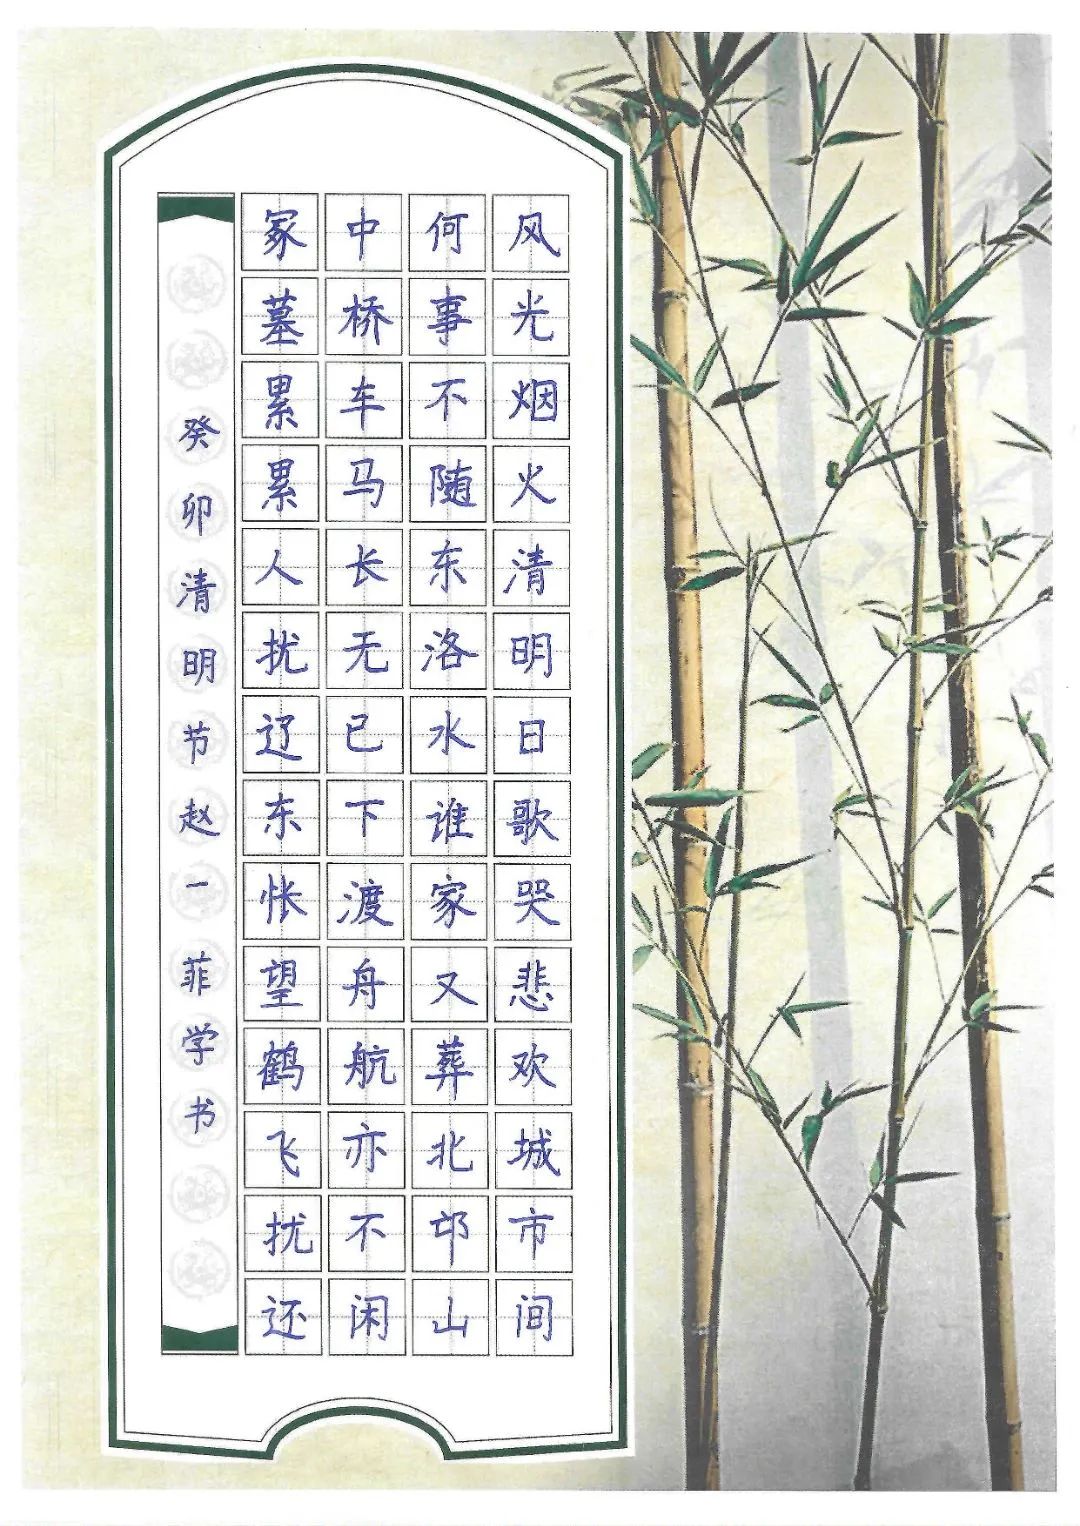 风光烟火清明日歌哭悲欢城市间
何事不随东洛水谁家又葬北邙山
中桥车马长无已下渡舟航亦不闲
冢墓累累人扰辽东怅望鹤飞扰还
癸卯清明节赵一菲学书